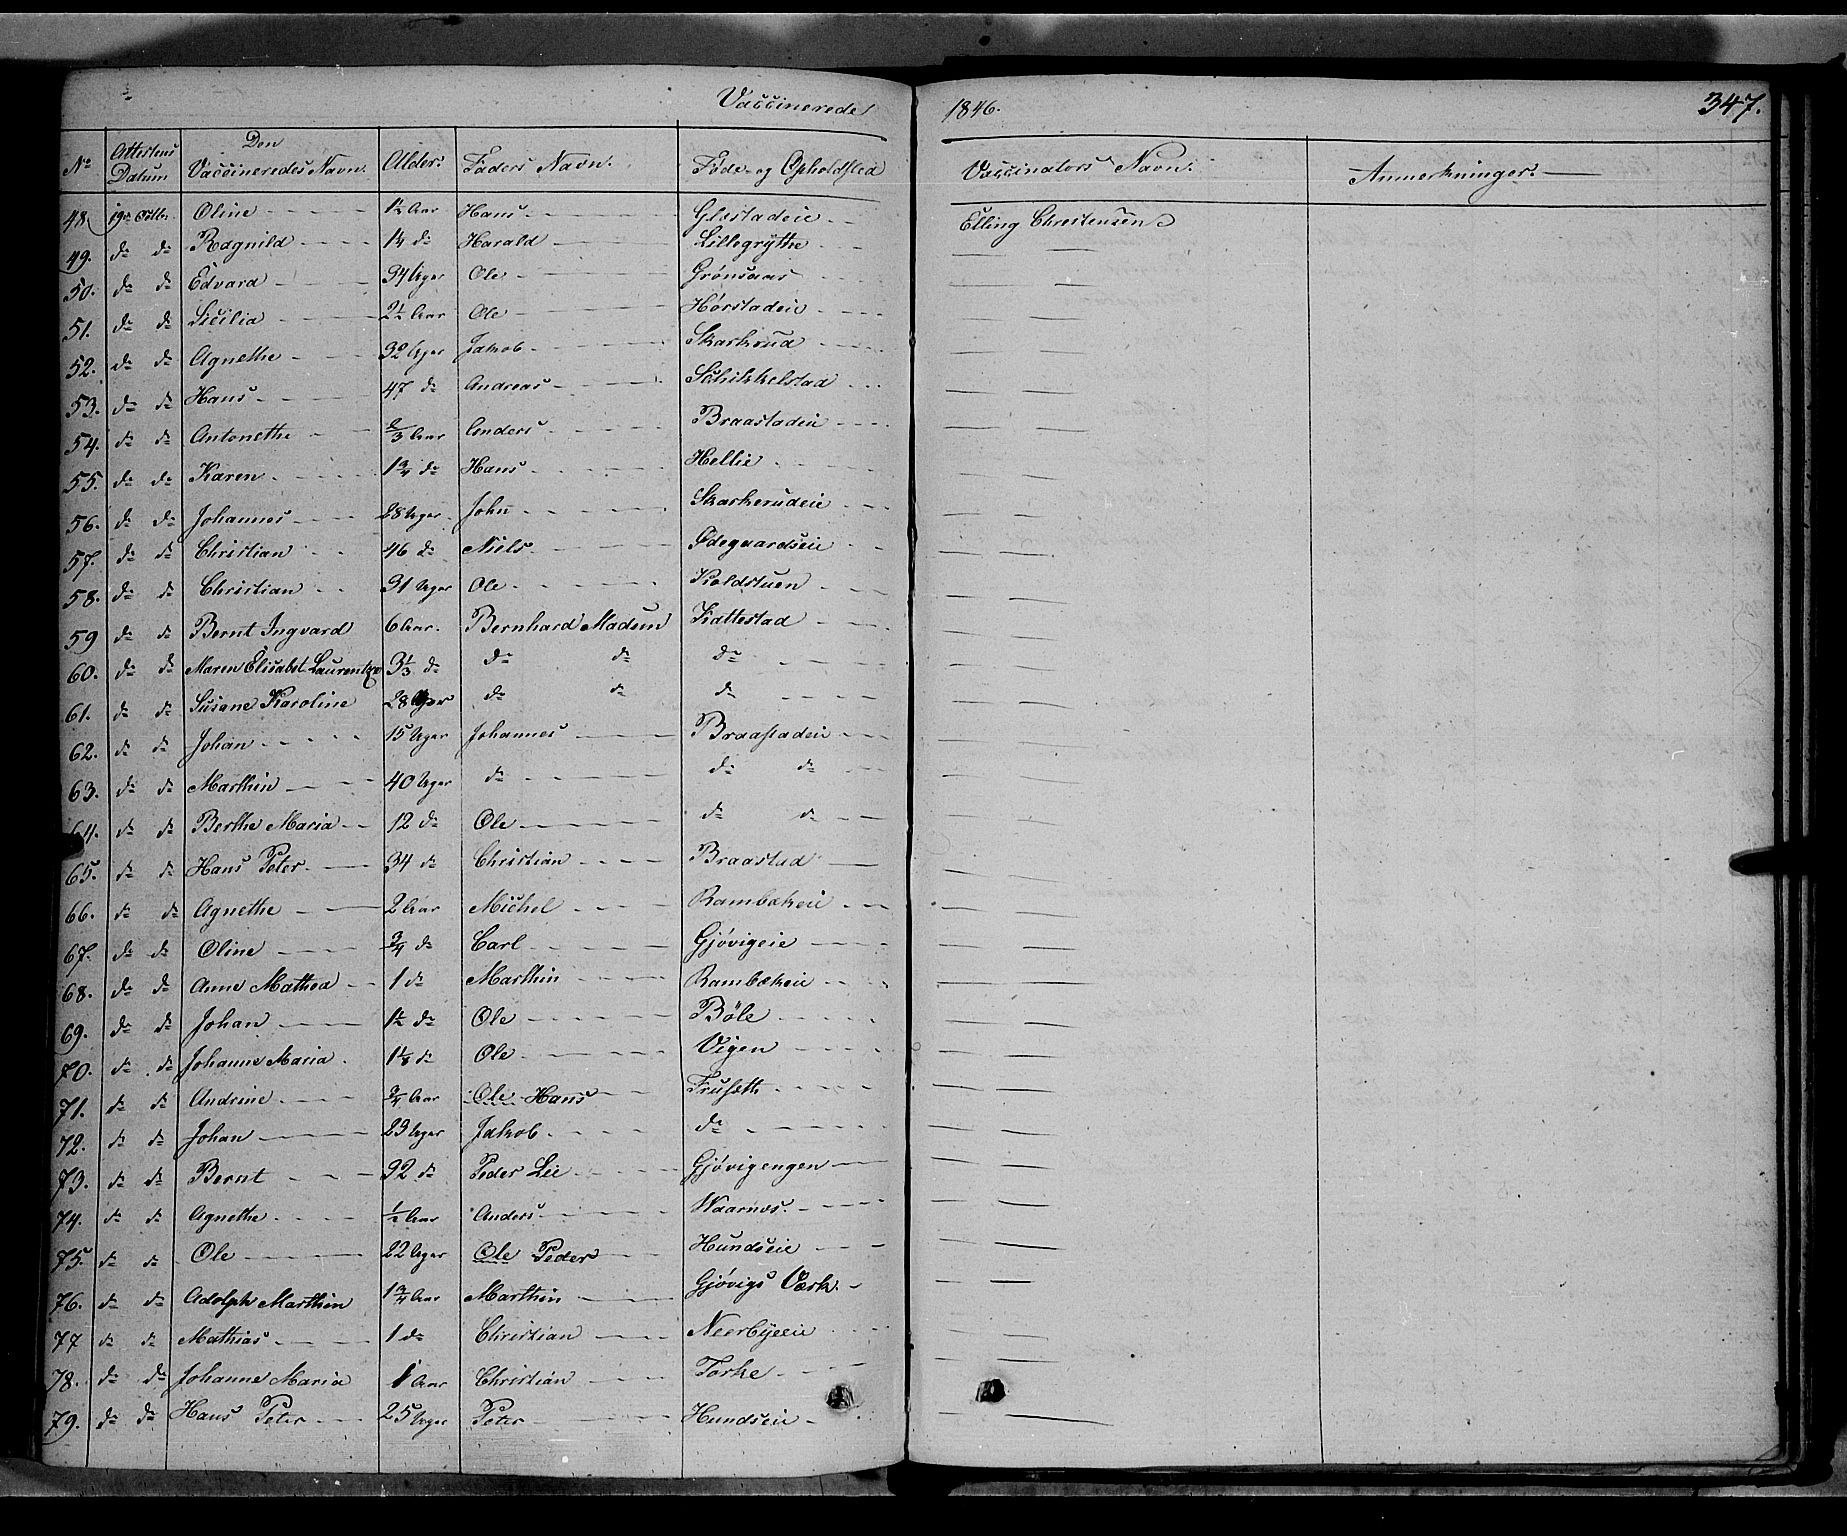 Vaccinerede 1846. 347.
No Attestens Datum Den Vaccineredes Navn. Alder. Faders Navn. Føde- og Opholdsted Vaccinators Navn. Anmerkninger.
48. 19de Octbr. Oline 1½ Aar Hans Glæstadeie Elling Christensen
49. do do Ragnild 1¼ do Harald Lillegrythe — —
50. do do Edvard 34 Uger Ole Grønsaas — —
51. do do Sicilia 2½ Aar Ole Hørstadeie — —
52. do do Agnethe 32 Uger Jakob Skarkrud — —
53. do do Hans 47 do Andreas Schikkelstad — —
54. do do Antonethe ⅔ Aar Anders Braastadeie — —
55. do do Karen 1¾ do Hans Hellie — —
56. do do Johannes 28 Uger John Skarkerudeie — —
57. do do Christian 46 do Niels Ødegaardseie — —
58. do do Christian 31 Uger Ole Koldstuen — —
59 do do Bernt Ingvard 6 Aar. Bernhard Madsen Kattestad — —
60. do do Maren Elisabet Laurentze 3⅓ do do do do — —
61. do do Susane Karoline 28 Uger do do do — —
62. do do Johan 15 Uger Johannes Braastadeie — —
63. do do Marthin 40 Uger do do do — —
64. do do Berthe Maria 12 do Ole do do — —
65. do do Hans Peter 34 do Christian Braastad — —
66. do do Agnethe 2 Aar Michel Rambækeie — —
67. do do Oline ¾ do Carl Gjøvigeie — —
68. do do Anne Mathea 1 do Marthin Rambækeie — —
69. do do Johan 1½ do Ole Bøle — —
70. do do Johanne Maria 1⅓ do Ole Vigen — —
71. do do Andrine ¾ Aar Ole Hans Fruseth — —
72. do do Johan 23 Uger Jakob do — —
73. do do Bernt 32 do Peder Lie Gjøvigengen — —
74. do do Agnethe ½ Aar Anders Waarnes — —
75. do do Ole 22 Uger Ole Peder Hundseie — —
76. do do Adolph Marthin 1¾ Aar Marthin Gjøvigs Værk — —
77 do do Mathias 1 do Christian Neerbyeeie — —
78. do do Johanne Maria 1 Aar Christian Torke — —
79. do do Hans Peter 25 Uger Peter Hundseie — —